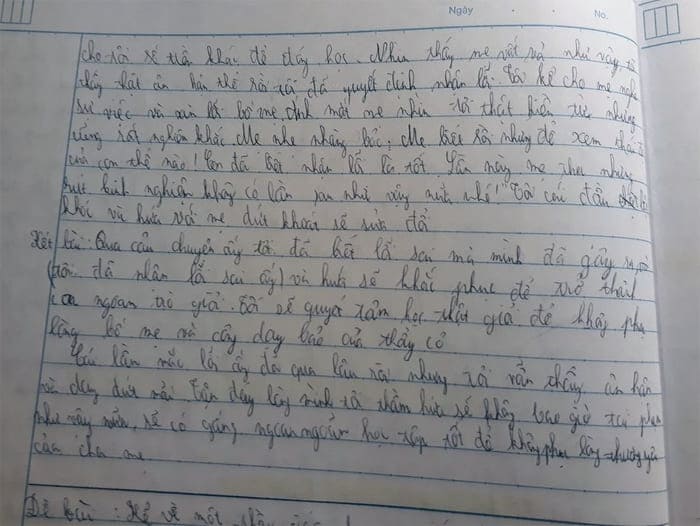 Ngày . . No.
cho tôi số tiền khác để đóng học. Nhìn thấy mẹ vất vả như vậy tôi
thấy thật ân hận thế rồi tôi đã quyết định nhận lỗi. Tôi kể cho mẹ nghe
sự việc và xin lỗi bố mẹ. Ánh mắt mẹ nhìn tôi thật hiền từ nhưng
cũng rất nghiêm khắc. Mẹ nhẹ nhàng bảo: Mẹ biết rồi nhưng để xem thái độ
của con thế nào! Con đã biết nhận lỗi là tốt. Lần này mẹ tha nhưng
rút kinh nghiệm không có lần sau như vậy nữa nhé!" Tôi cúi đầu
khóc và hứa với mẹ dứt khoát sẽ sửa đổi
Kết bài: Qua câu chuyện ấy tôi đã biết lỗi sai mà mình đã gây ra
(tôi đã nhận lỗi sai ấy) và hứa sẽ khắc phục để trở thành
con ngoan trò giỏi. Tôi sẽ quyết tâm học thật giỏi để không phụ
lòng bố mẹ và công dạy bảo của thầy cô
Cái lần mắc lỗi ấy đã qua lâu rồi nhưng tôi vẫn thấy ân hận
và day dứt mãi. Tận đáy lòng mình tôi thầm hứa sẽ không bao giờ tái phạm
như vậy nữa, sẽ cố gắng ngoan ngoãn học tập tốt để không phụ lòng thương yêu
của cha mẹ
Đề bài: Kể về một